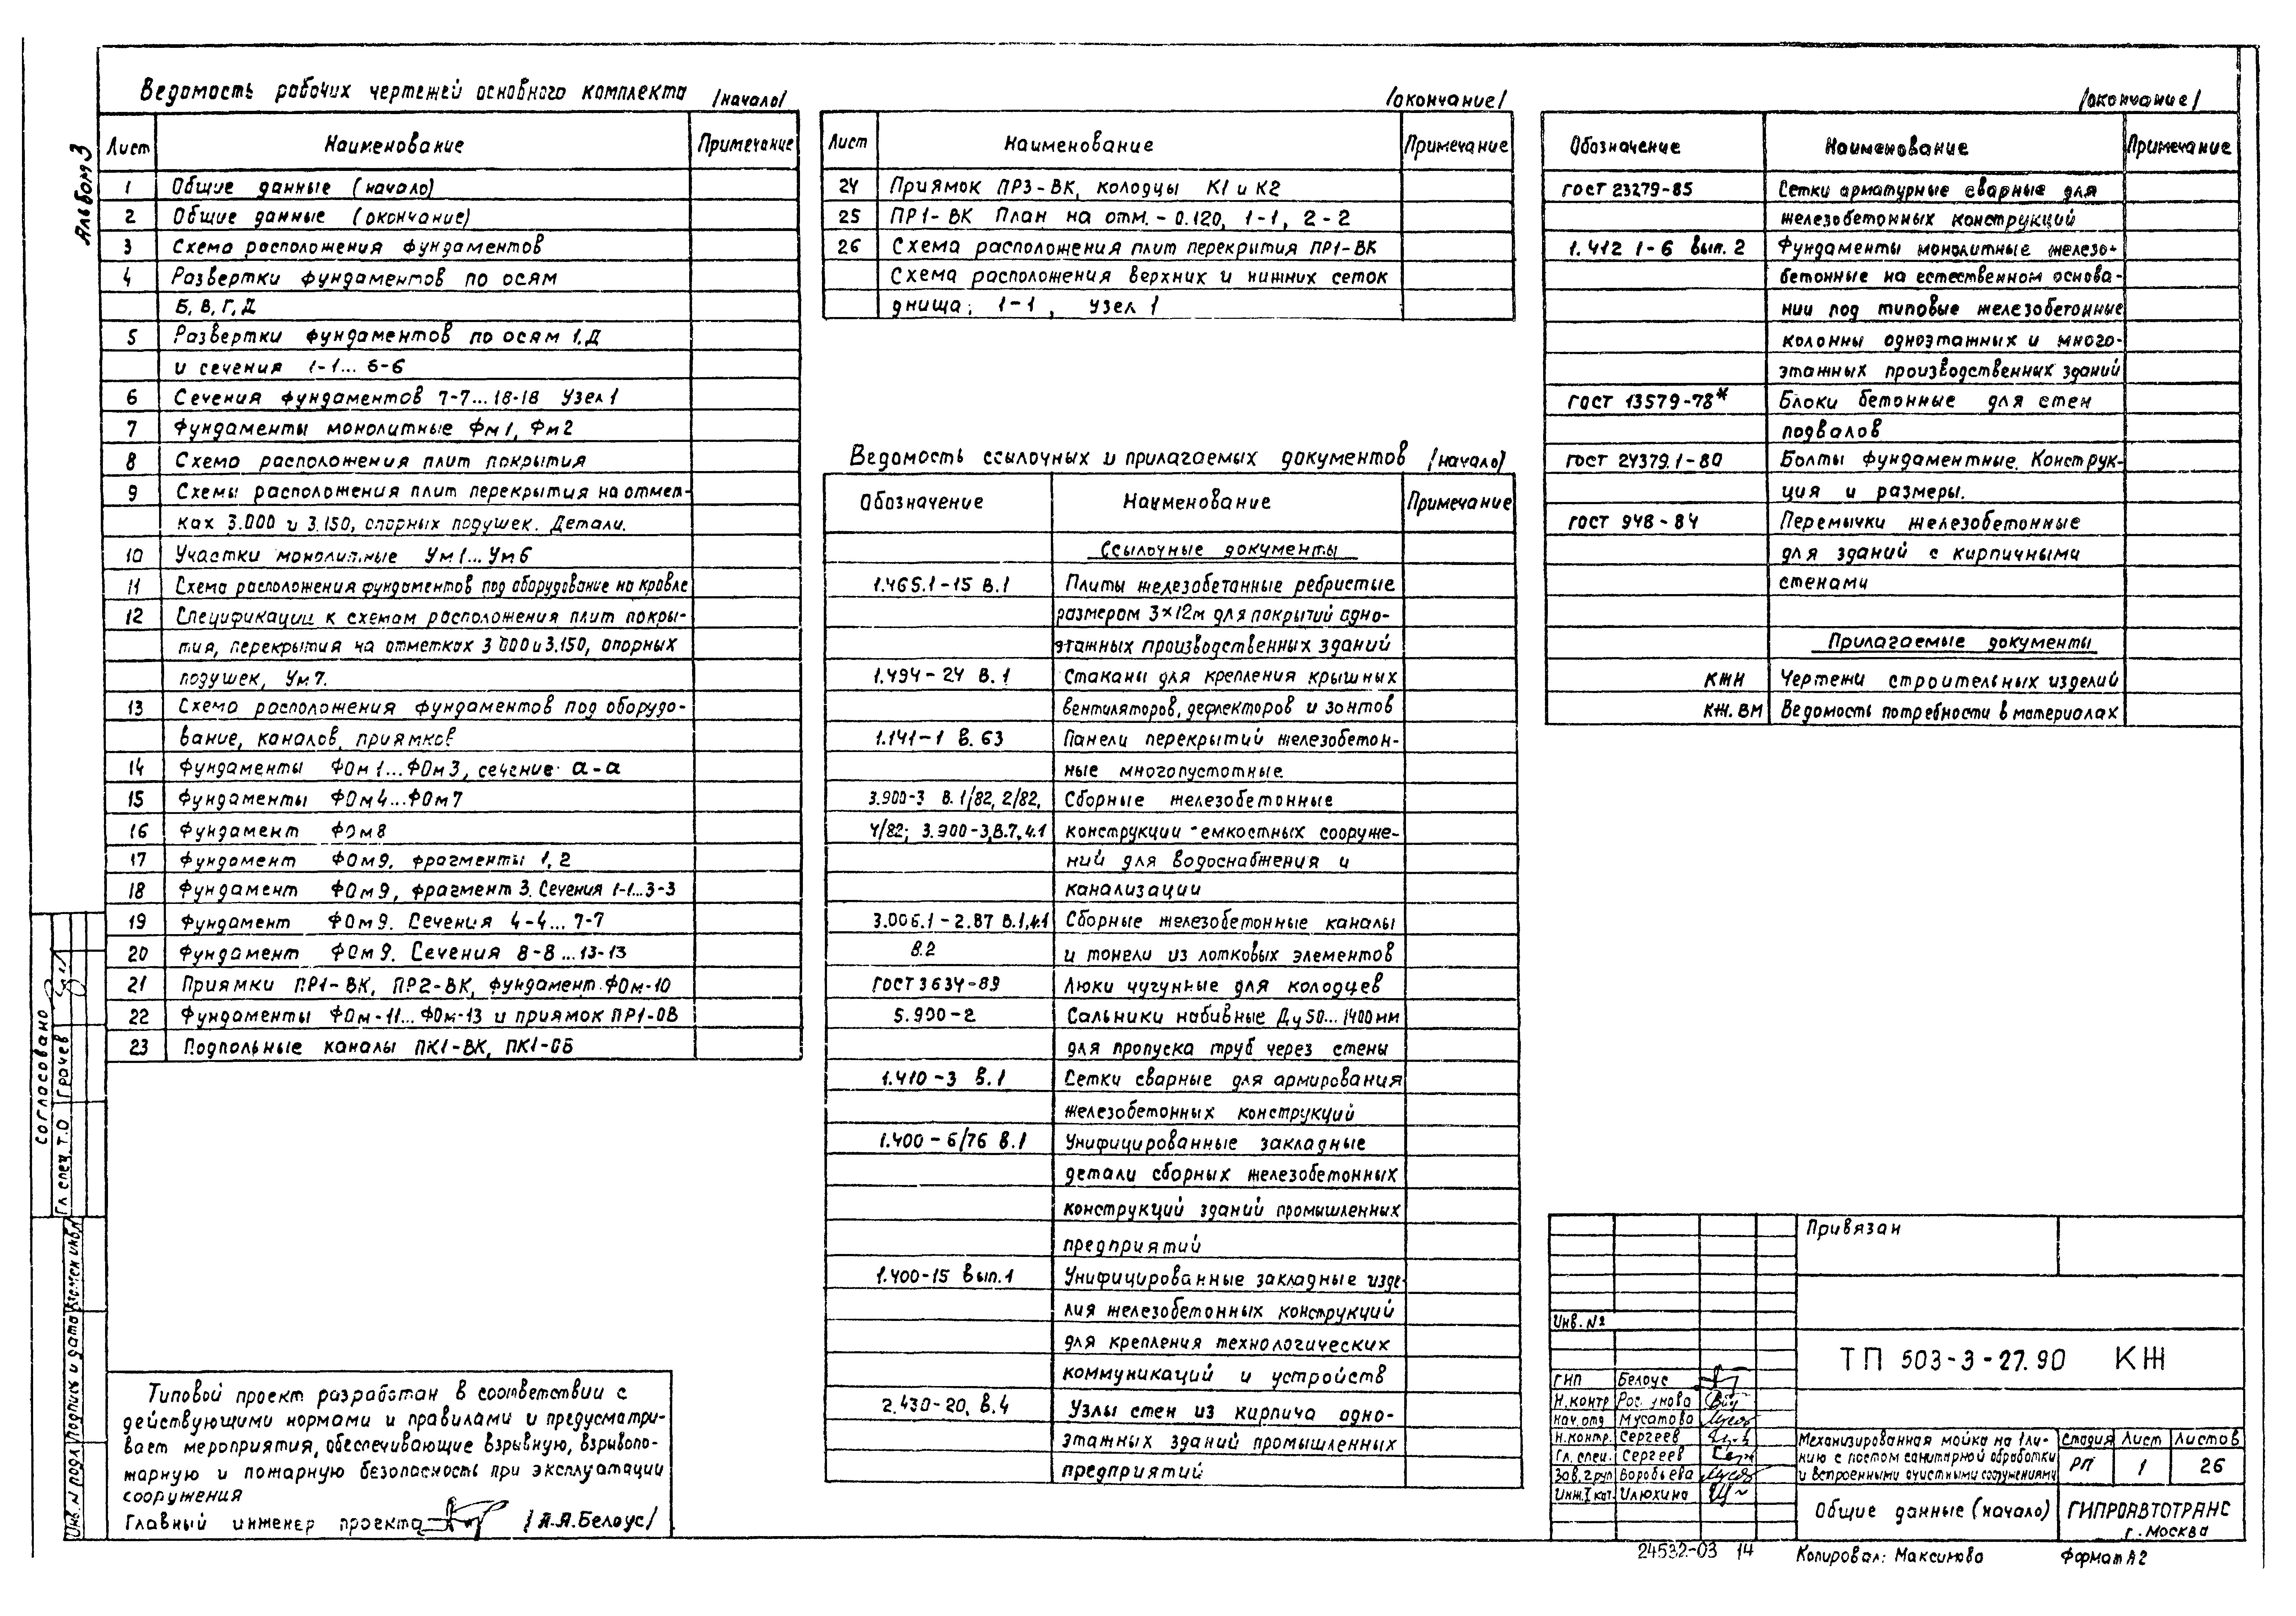 Альбом 3
Ведомость рабочих чертежей основного комплекта /начало/
Лист Наименование Примечание
1 Общие данные (начало)
2 Общие данные (окончание)
3 Схема расположения фундаментов
4 Развертки фундаментов по осям
Б, В, Г, Д
5 Развертки фундаментов по осям 1, Д
и сечения 1-1... 6-6
6 Сечения фундаментов 7-7...18-18 Узел 1
7 Фундаменты монолитные Фм1, Фм2
8 Схема расположения плит покрытия
9 Схемы расположения плит перекрытия на отмет-
ках 3.000 и 3.150, опорных подушек. Детали.
10 Участки монолитные Ум1... Ум6
11 Схема расположения фундаментов под оборудование на кровле
12 Спецификации к схемам расположения плит покры-
тия, перекрытия на отметках 3 000 и 3.150, опорных
подушек, Ум7.
13 Схема расположения фундаментов под оборудо-
вание, каналов, приямков
14 Фундаменты ФОм1...ФОм3, сечение а-а
15 Фундаменты ФОм4...ФОм7
16 Фундамент ФОм8
17 Фундамент ФОм9. фрагменты 1, 2
18 Фундамент ФОм9, фрагмент 3. Сечения 1-1...3-3
19 Фундамент ФОм9. Сечения 4-4... 7-7
20 Фундамент ФОм9. Сечения 8-8...13-13
21 Приямки ПР1-ВК, ПР2-ВК, фундамент ФОм-10
22 Фундаменты ФОм-11... ФОм-13 и приямок ПР1-ОВ
23 Подпольные каналы ПК1-ВК, ПК1-ОВ
/окончание/
Лист Наименование Примечание
24 Приямок ПР3-ВК, колодцы К1 и К2
25 ПР1-ВК План на отм. -0.120, 1-1, 2-2
26 Схема расположения плит перекрытия ПР1-ВК
Схема расположения верхних и нижних сеток
днища; 1-1, узел 1
Ведомость ссылочных и прилагаемых документов /начало/
Обозначение Наименование Примечание
Ссылочные документы
1.465.1-15 В.1 Плиты железобетонные ребристые
размером 3×12м для покрытий одно-
этажных производственных зданий
1.494-24 В.1 Стаканы для крепления крышных
вентиляторов, дефлекторов и зонтов
1.141-1 в. 63 Панели перекрытий железобетон-
ные многопустотные
3.900-3 В.1/82, 2/82, Сборные железобетонные
4/82; 3.900-3, В.7, ч.1 конструкции емкостных сооруже-
ний для водоснабжения и
канализации
3.006.1-2.87 В.1, ч.1 Сборные железобетонные каналы
В.2 и тонели из лотковых элементов
ГОСТ 3634-89 Люки чугунные для колодцев
5.900-2 Сальники набивные Ду 50...1400 мм
для пропуска труб через стены
1.410-3 В.1 Сетки сварные для армирования
железобетонных конструкций
1.400-6/76 В.1 Унифицированные закладные
детали сборных железобетонных
конструкций зданий промышленных
предприятий
1.400-15 вып.1 Унифицированные закладные изде-
лия железобетонных конструкций
для крепления технологических
коммуникаций и устройств
2.430-20, В.4 Узлы стен из кирпича одно-
этажных зданий промышленных
предприятий
/окончание/
Обозначение Наименование Примечание
ГОСТ 23279-85 Сетки арматурные сварные для
железобетонных конструкций
1.412 1-6 вып. 2 Фундаменты монолитные железо-
бетонные на естественном основа-
нии под типовые железобетонные
колонны одноэтажных и много-
этажных производственных зданий
ГОСТ 13579-78* Блоки бетонные для стен
подвалов
ГОСТ 24379.1-80 Болты фундаментные. Конструк-
ция и размеры.
ГОСТ 948-84 Перемычки железобетонные
для зданий с кирпичными
стенами
Прилагаемые документы
КЖИ Чертежи строительных изделий
КЖ. ВМ Ведомость потребности в материалах
Согласовано
Гл. спец. Т.О Грачев
Инв. N подл Подпись и дата Взамен инв. N
Типовой проект разработан в соответствии с
действующими нормами и правилами и предусматри-
вает мероприятия, обеспечивающие взрывную, взрывопо-
жарную и пожарную безопасность при эксплуатации
сооружения
Главный инженер проекта /А.Я.Белоус/
Привязан
Инв. №
ТП 503-3-27.90 КЖ
ГИП Белоус
Н.контр
Нач. отд Мусатова
Н.контр. Сергеев
Гл. спец. Сергеев
Зав. груп Воробьева
Инж. I кат. Илюхина
Механизированная мойка на 1 ли-
нию с постом санитарной обработки
и встроенными очистными сооружениями
Стадия Лист Листов
РП 1 26
Общие данные (начало)
ГИПРОАВТОТРАНС
г. Москва
24532-03 14
Копировал: Максимова
Формат А2